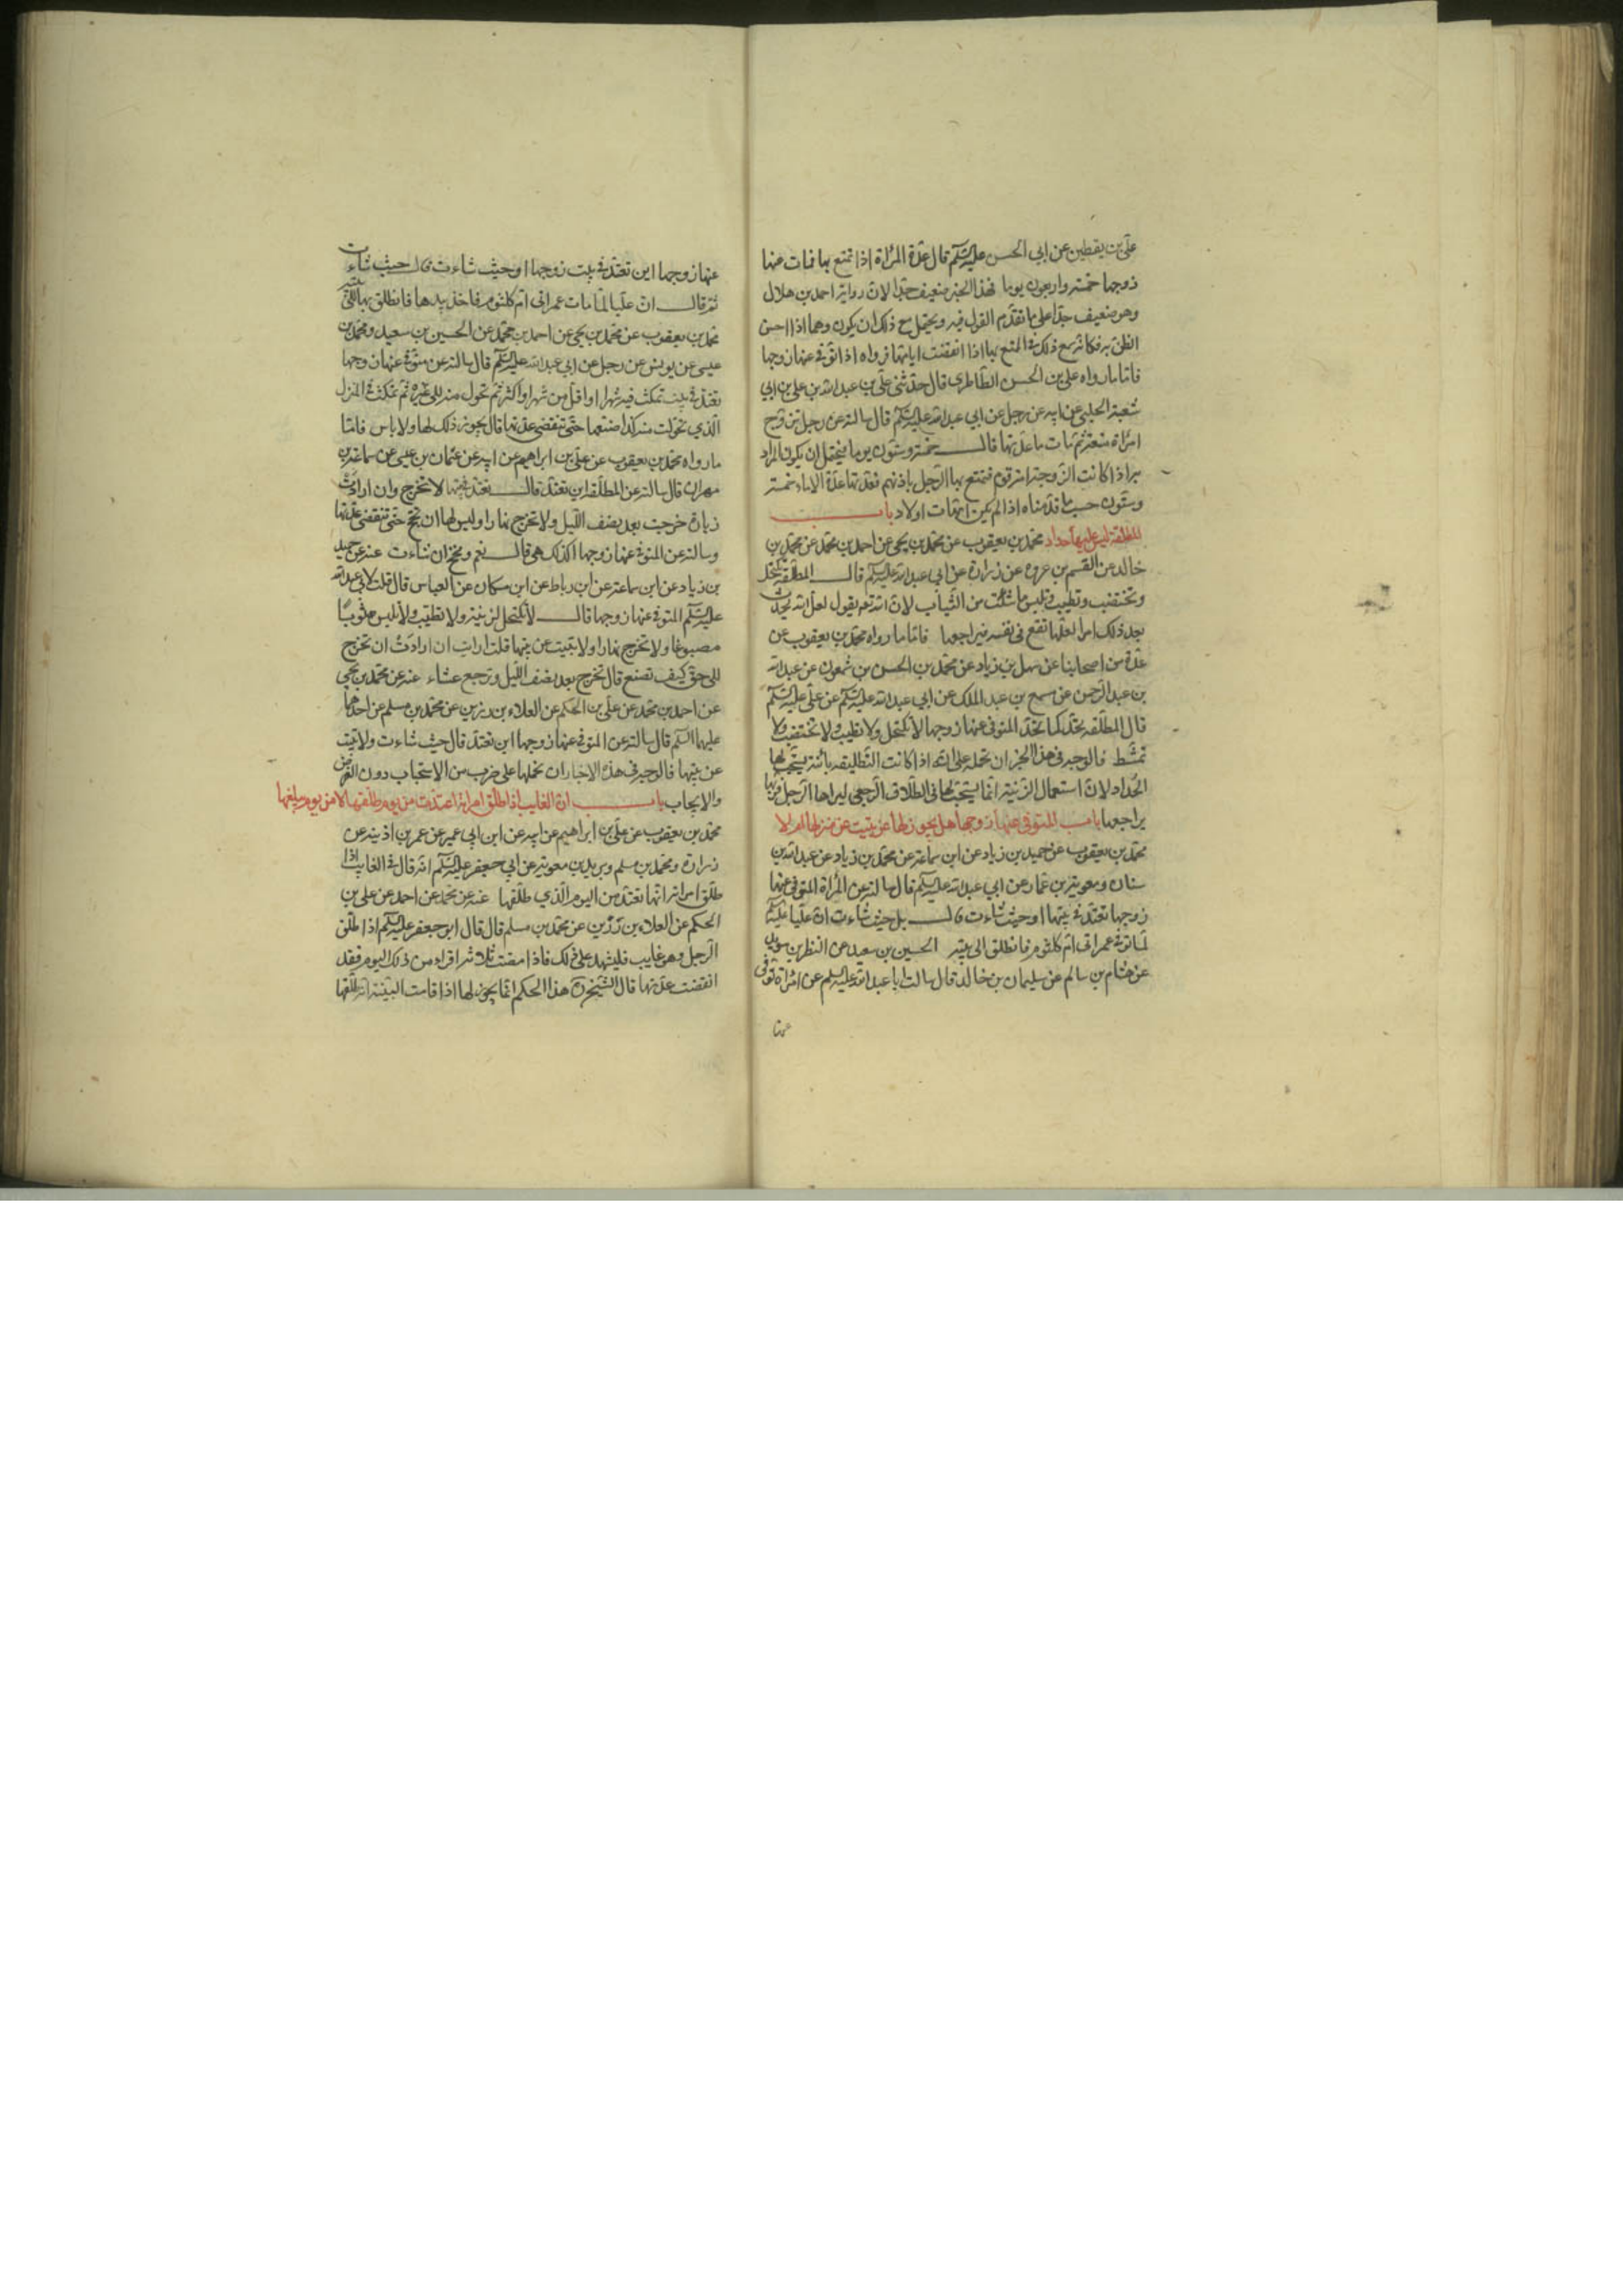 علي بن يقطين عن ابي الحسن عليه السلم قال عدة المراة اذا تمتع بها فمات عنها
زوجها خمسة واربعون يوما فهذا الخبر ضعيف جدا لان رواية احمد بن هلال
وهو ضعيف جدا على ما تقدم القول فيه ويحتمل مع ذلك ان يكون وهما اذا احسن
الظن به فكانه سمع ذلك في المتع بها اذا انقضت ايامها فرواه اذا توفي عنها زوجها
فاما ما رواه علي بن الحسن الطاطري قال حدثني علي بن عبد الله بن علي بن ابي
شعبة الحلبي عن ابيه عن رجل عن ابي عبد الله عليه السلم قال سالته عن رجل تزوج
امراة متعة ثم مات ما عدتها قال خمسة وستون يوما فيحتمل ان يكون المراد
به اذا كانت الزوجة امة قوم فتمتع بها الرجل باذنهم فعدتها عدة الاماء خمسة
وستون حسب ما قدمناه اذا لم يكن امهات اولاد باب
المطلقة ليس عليها حداد محمد بن يعقوب عن محمد بن يحيى عن احمد بن محمد عن محمد بن
خالد عن القسم بن عروه عن زرارة عن ابي عبد الله عليه السلم قال المطلقة تكتحل
وتختضب وتطيب وتلبس ما شائت من الثياب لان الله تعم يقول لعل الله يحدث
بعد ذلك امرا لعلها تقع في نفسه فيراجعها فاما ما رواه محمد بن يعقوب عن
عدة من اصحابنا عن سهل بن زياد عن محمد بن الحسن بن شمعون عن عبد الله
بن عبد الرحمن عن مسمع بن عبد الملك عن ابي عبد الله عليه السلم عن علي عليه السلم
قال المطلقه تحد كما تحد المتوفى عنها زوجها لا تكتحل ولا تطيب ولا تختضب ولا
تمشط فالوجه في هذا الخبر ان نحمله على انه اذا كانت التطليقه بائنة يستحب لها
الحداد لان استعمال الزينة انما يستحب لها في الطلاق الرجعي ليراها الرجل فربما
يراجعها باب المتوفى عنها زوجها هل يجوز لها ان تبيت عن منزلها ام لا
محمد بن يعقوب عن حميد بن زياد عن ابن سماعة عن محمد بن زياد عن عبد الله بن
سنان ومعوية بن عمار عن ابي عبد الله عليه السلم قال سالته عن المراة المتوفى عنها
زوجها تعتد في بيتها او حيث شاءت قال بل حيث شاءت ان عليا عليه السلم
لما توفي عمر اتى ام كلثوم فانطلق الى بيته الحسين بن سعيد عن النظر بن سويد
عن هشام بن سالم عن سليمان بن خالد قال سالت ابا عبد الله عليه السلم عن امراة توفى
عنها
عنها زوجها اين تعتد في بيت زوجها او حيث شاءت قال حيث شاءت
ثم قال ان عليا لما مات عمر اتى ام كلثوم فاخذ بيدها فانطلق بها الى بيته
محمد بن يعقوب عن محمد بن يحيى عن احمد بن محمد عن الحسين بن سعيد ومحمد بن
عيسى عن يونس عن رجل عن ابي عبد الله عليه السلم قال سالته عن متوفى عنها زوجها
تعتد في بيت تمكث فيه شهرا او اقل من شهرا او اكثر ثم تحول منه الى غيره ثم تمكث في المنزل
الذي تحولت منه كذا صنعها حتى تنقضي عدتها قال يجوز ذلك لها ولا باس فاما
ما رواه محمد بن يعقوب عن علي بن ابراهيم عن ابيه عن عثمان بن عيسى عن سماعة بن
مهران قال سالته عن المطلقة اين تعتد قال تعتد في بيتها لا تخرج وان ارادت
زيارة خرجت بعد نصف الليل ولا تخرج نهارا وليس لها ان تحج حتى تنقضي عدتها
وسالته عن المتوفى عنها زوجها اكذلك هي قال نعم وتحج ان شاءت عنه عن حميد
بن زياد عن ابن سماعة عن ابن رباط عن ابن مسكان عن العباس قال قلت لابي عبد الله
عليه السلم المتوفى عنها زوجها قال لا تكتحل لزينة ولا تطيب ولا تلبس ثوبا
مصبوغا ولا تخرج نهارا ولا تبيت عن بيتها قلت ارايت ان ارادت ان تخرج
الى حق كيف تصنع قال تخرج بعد نصف الليل وترجع عشاء عنه عن محمد بن يحيى
عن احمد بن محمد عن علي بن الحكم عن العلاء بن رزين عن محمد بن مسلم عن احدهما
عليهما السلم قال سالته عن المتوفى عنها زوجها اين تعتد قال حيث شاءت ولا تبيت
عن بيتها فالوجه في هذه الاخبار ان نحملها على ضرب من الاستحباب دون الفرض
والايجاب باب ان الغايب اذا طلق امراته اعتدت من يوم طلقها لا من يوم يبلغها
محمد بن يعقوب عن علي بن ابراهيم عن ابيه عن ابن ابي عمير عن عمر بن اذينه عن
زرارة ومحمد بن مسلم وبريد بن معوية عن ابي جعفر عليه السلم انه قال في الغايب اذا
طلق امراته انها تعتد من اليوم الذي طلقها عنه عن محمد عن احمد عن علي بن
الحكم عن العلاء بن رزين عن محمد بن مسلم قال قال ابو جعفر عليه السلم اذا طلق
الرجل وهو غايب فليشهد على ذلك فاذا مضت ثلاثة اقراء من ذلك اليوم فقد
انقضت عدتها قال الشيخ ره هذا الحكم انما يجوز لها اذا قامت البينة انه طلقها